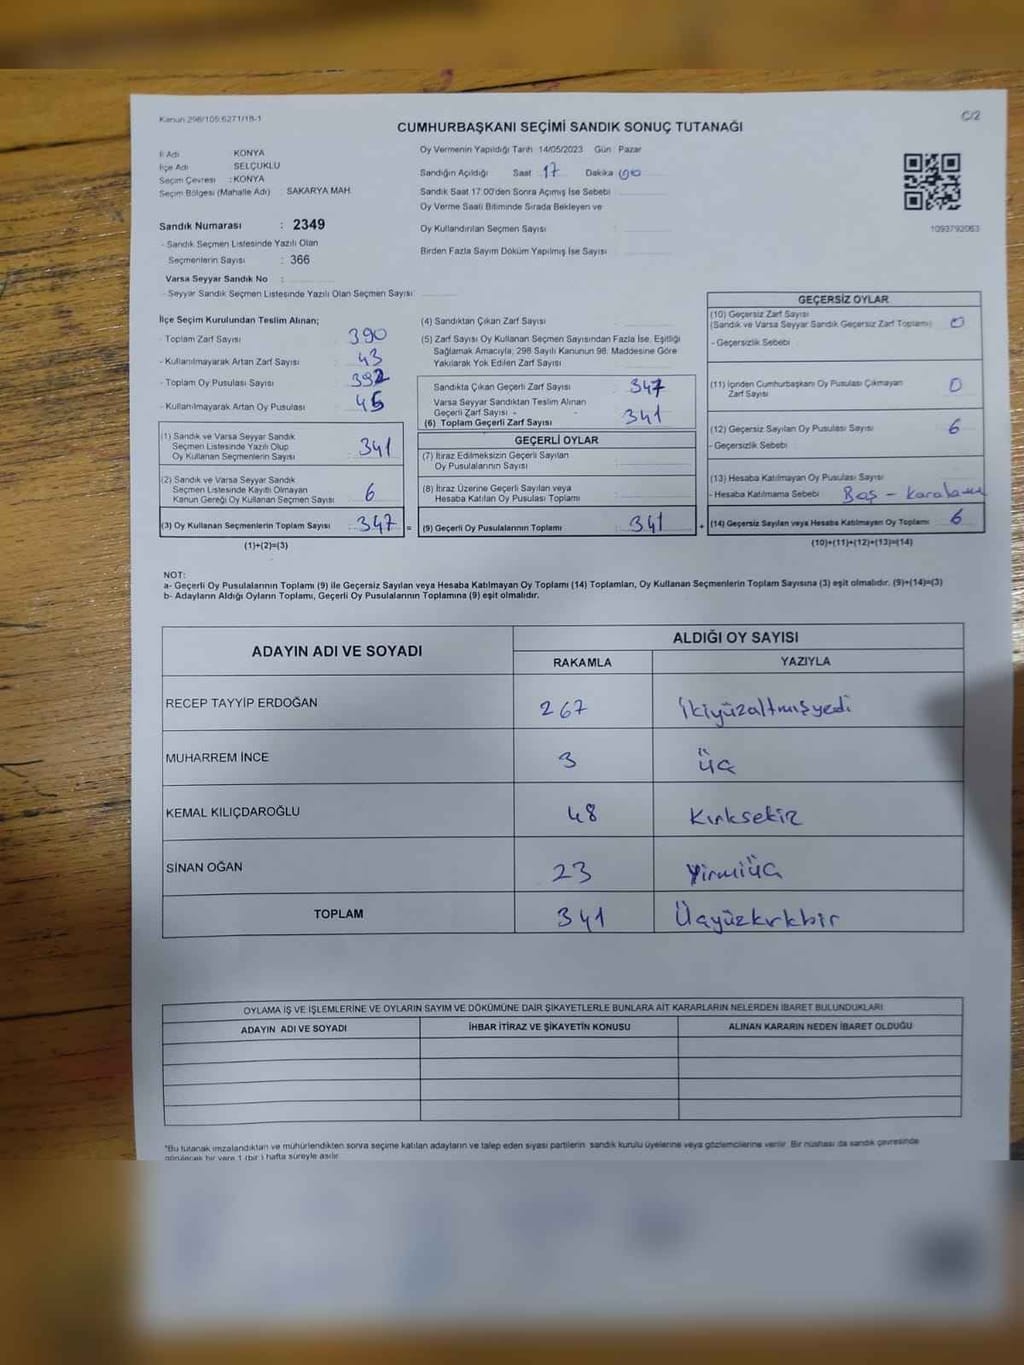 Kanun 298/105:6271/18-1
C/2
CUMHURBAŞKANI SEÇİMİ SANDIK SONUÇ TUTANAĞI
İl Adı KONYA
İlçe Adı SELÇUKLU
Seçim Çevresi : KONYA
Seçim Bölgesi (Mahalle Adı) : SAKARYA MAH.
Sandık Numarası : 2349
- Sandık Seçmen Listesinde Yazılı Olan
Seçmenlerin Sayısı : 366
Varsa Seyyar Sandık No :
- Seyyar Sandık Seçmen Listesinde Yazılı Olan Seçmen Sayısı
Oy Vermenin Yapıldığı Tarih 14/05/2023 Gün : Pazar
Sandığın Açıldığı Saat 17 Dakika
Sandık Saat 17:00'den Sonra Açımış İse Sebebi
Oy Verme Saati Bitiminde Sırada Bekleyen ve
Oy Kullandırılan Seçmen Sayısı
Birden Fazla Sayım Döküm Yapılmış İse Sayısı
1093792063
İlçe Seçim Kurulundan Teslim Alınan;
- Toplam Zarf Sayısı 390
- Kullanılmayarak Artan Zarf Sayısı 43
- Toplam Oy Pusulası Sayısı 392
- Kullanılmayarak Artan Oy Pusulası 45
(1) Sandık ve Varsa Seyyar Sandık
Seçmen Listesinde Yazılı Olup
Oy Kullanan Seçmenlerin Sayısı 341
(2) Sandık ve Varsa Seyyar Sandık
Seçmen Listesinde Kayıtlı Olmayan
Kanun Gereği Oy Kullanan Seçmen Sayısı 6
(3) Oy Kullanan Seçmenlerin Toplam Sayısı 347 =
(1)+(2)=(3)
(4) Sandıktan Çıkan Zarf Sayısı
(5) Zarf Sayısı Oy Kullanan Seçmen Sayısından Fazla İse, Eşitliği
Sağlamak Amacıyla, 298 Sayılı Kanunun 98. Maddesine Göre
Yakılarak Yok Edilen Zarf Sayısı
Sandıkta Çıkan Geçerli Zarf Sayısı 347
Varsa Seyyar Sandıktan Teslim Alınan
Geçerli Zarf Sayısı -
(6) Toplam Geçerli Zarf Sayısı 341
GEÇERLİ OYLAR
(7) İtiraz Edilmeksizin Geçerli Sayılan
Oy Pusulalarının Sayısı
(8) İtiraz Üzerine Geçerli Sayılan veya
Hesaba Katılan Oy Pusulası Toplamı
(9) Geçerli Oy Pusulalarının Toplamı 341 +
GEÇERSİZ OYLAR
(10) Geçersiz Zarf Sayısı
(Sandık ve Varsa Seyyar Sandık Geçersiz Zarf Toplamı) 0
- Geçersizlik Sebebi
(11) İçinden Cumhurbaşkanı Oy Pusulası Çıkmayan
Zarf Sayısı 0
(12) Geçersiz Sayılan Oy Pusulası Sayısı 6
- Geçersizlik Sebebi
(13) Hesaba Katılmayan Oy Pusulası Sayısı
- Hesaba Katılmama Sebebi Boş - Karalama
(14) Geçersiz Sayılan veya Hesaba Katılmayan Oy Toplamı 6
(10)+(11)+(12)+(13)=(14)
NOT:
a- Geçerli Oy Pusulalarının Toplamı (9) ile Geçersiz Sayılan veya Hesaba Katılmayan Oy Toplamı (14) Toplamları, Oy Kullanan Seçmenlerin Toplam Sayısına (3) eşit olmalıdır. (9)+(14)=(3)
b- Adayların Aldığı Oyların Toplamı, Geçerli Oy Pusulalarının Toplamına (9) eşit olmalıdır.
ADAYIN ADI VE SOYADI ALDIĞI OY SAYISI
RAKAMLA YAZIYLA
RECEP TAYYİP ERDOĞAN 267 İkiyüzaltmışyedi
MUHARREM İNCE 3 üç
KEMAL KILIÇDAROĞLU 48 Kırksekiz
SİNAN OĞAN 23 yirmiüç
TOPLAM 341 Üçyüzkırkbir
OYLAMA İŞ VE İŞLEMLERİNE VE OYLARIN SAYIM VE DÖKÜMÜNE DAİR ŞİKAYETLERLE BUNLARA AİT KARARLARIN NELERDEN İBARET BULUNDUKLARI
ADAYIN ADI VE SOYADI İHBAR İTİRAZ VE ŞİKAYETİN KONUSU ALINAN KARARIN NEDEN İBARET OLDUĞU
*Bu tutanak imzalandıktan ve mühürlendikten sonra seçime katılan adayların ve talep eden siyasi partilerin sandık kurulu üyelerine veya gözlemcilerine verilir. Bir nüshası da sandık çevresinde
görülecek bir yere 1 (bir) hafta süreyle asılır.